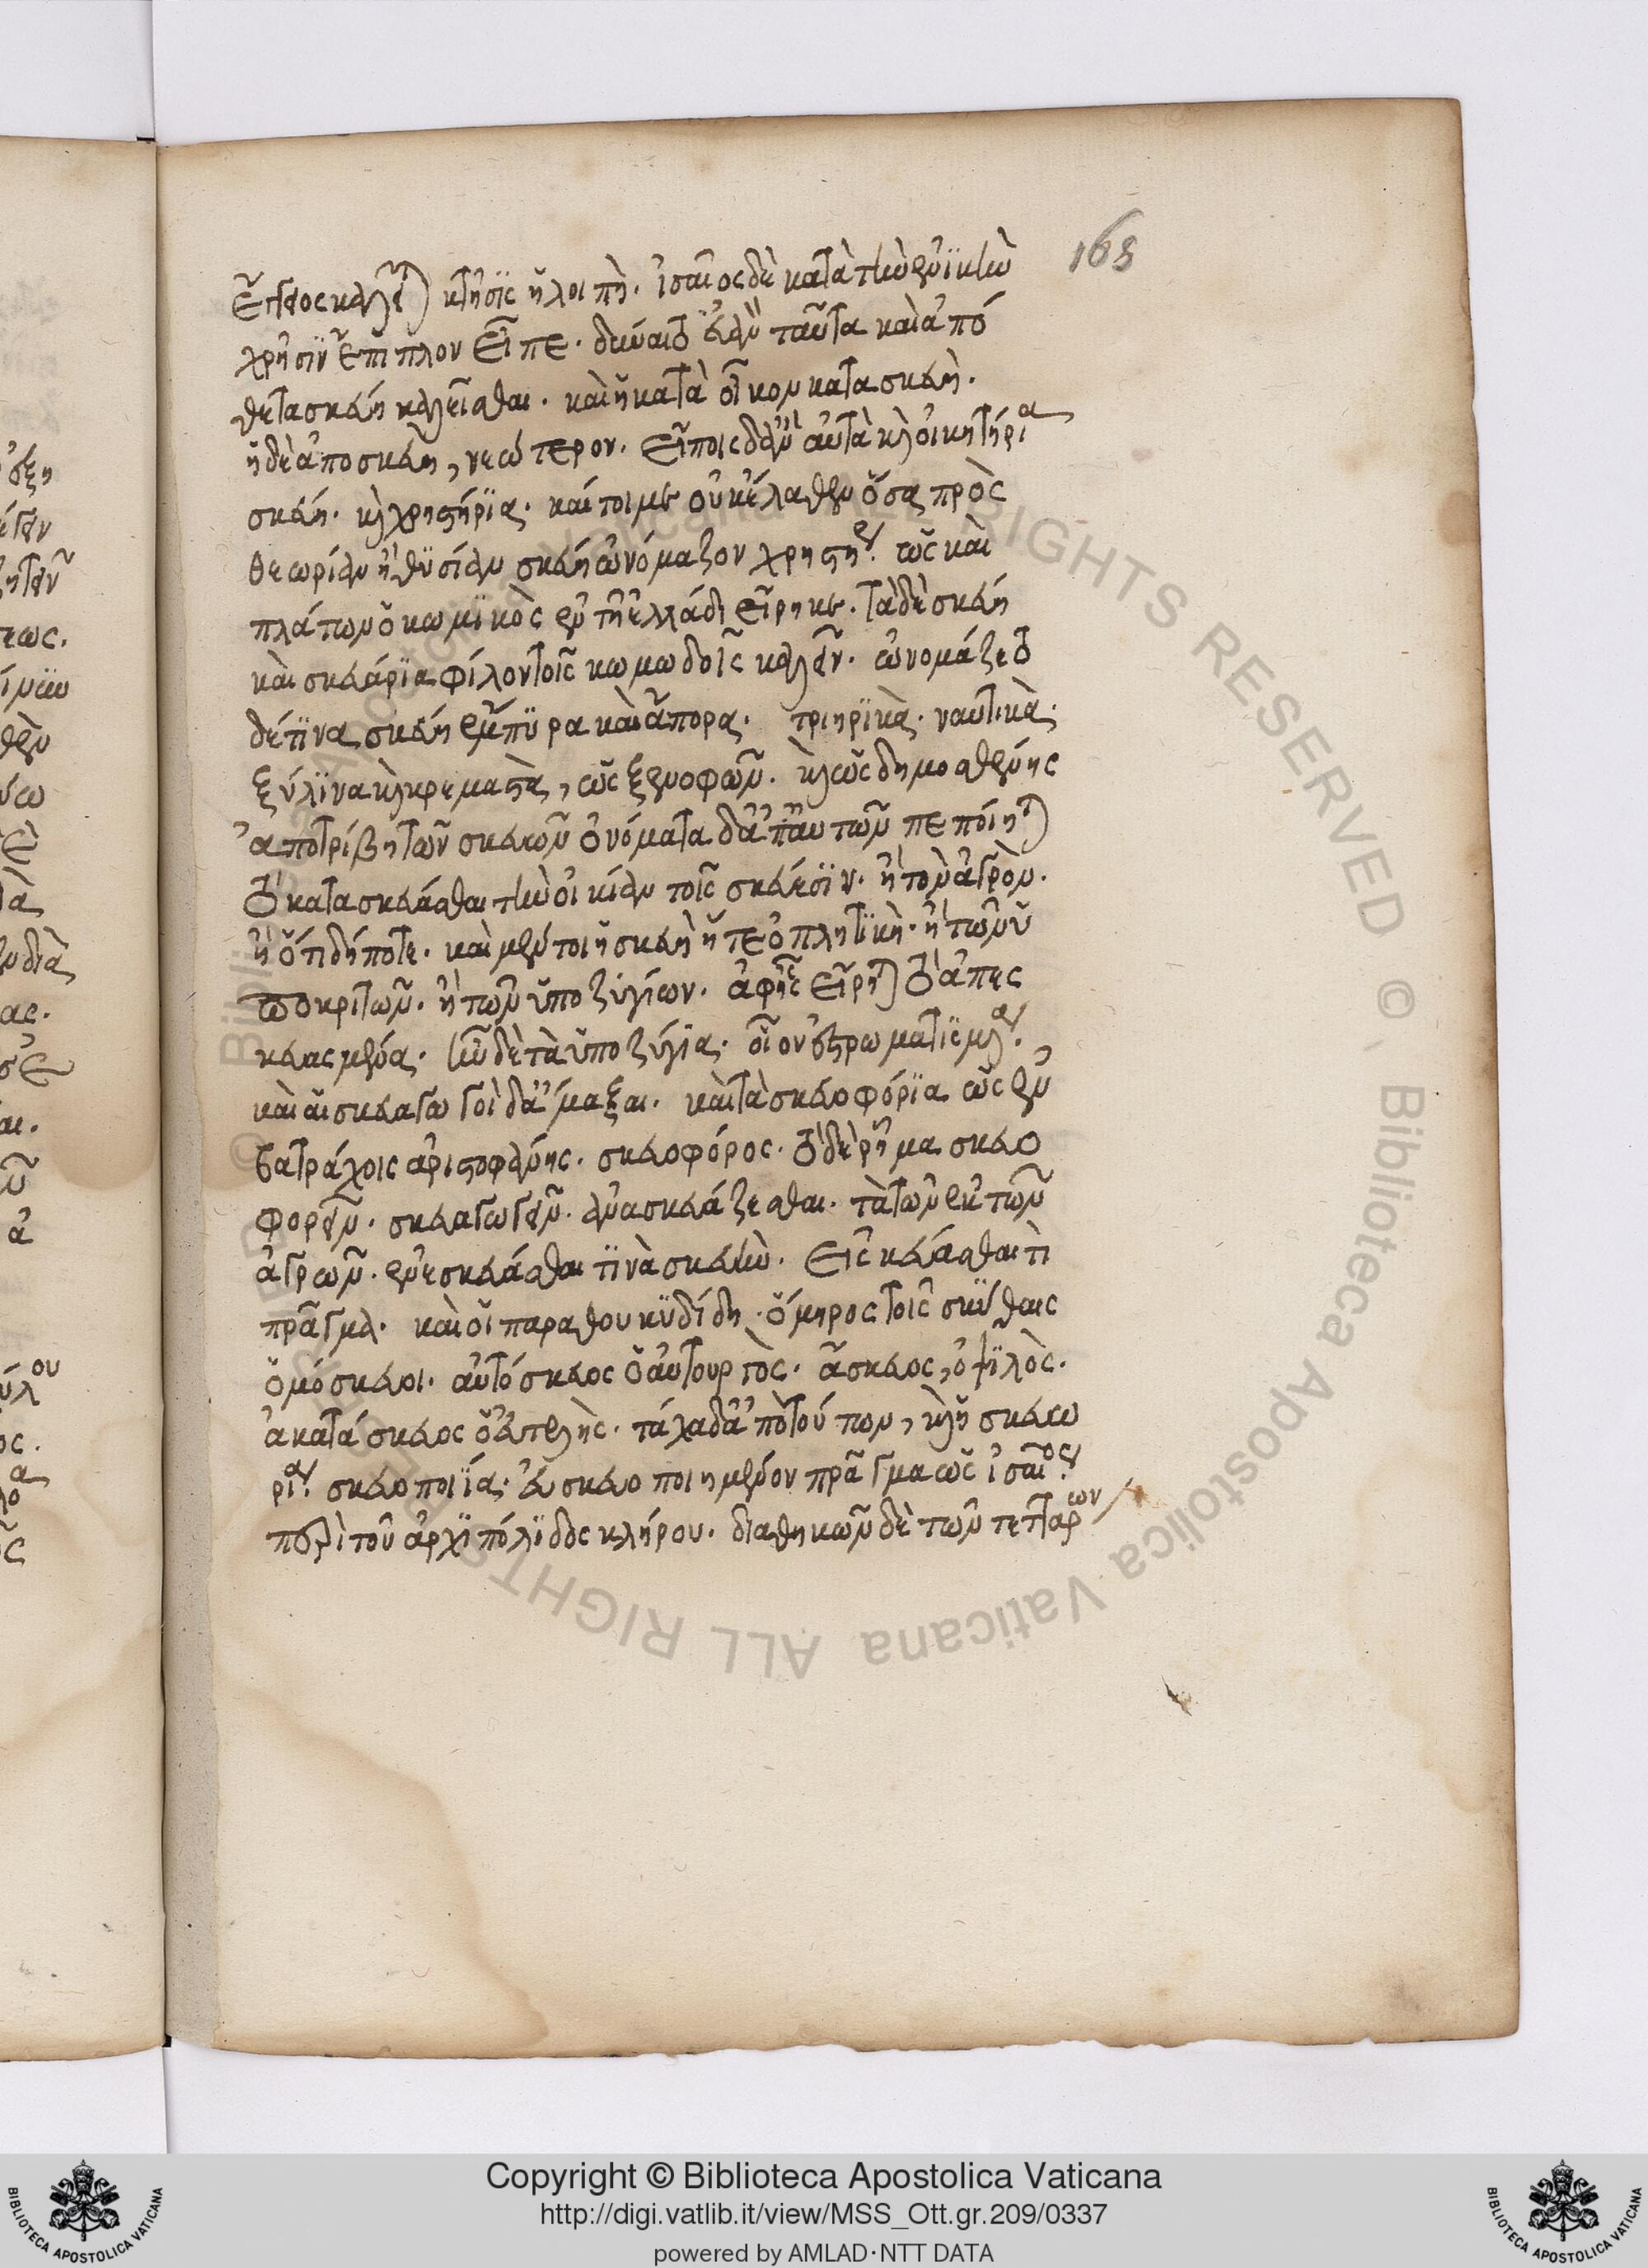 168
ἔγγεος καλεῖται κτῆσις ἡ λοιπή. ἰσαῖος δὲ κατὰ τὴν ἐνϊκὴν
χρῆσιν ἔπιπλον εἶπε. δύναιτο δ' ἂν ταῦτα καὶ ἀπό
θετα σκεύη καλεῖσθαι. καὶ ἡ κατὰ οἶκον κατασκευή.
ἡ δὲ ἀποσκευὴ, νεώτερον. εἴποις δ' ἂν αὐτὰ καὶ οἰκητήρια
σκεύη. καὶ χρηστήρια. καίτοι με οὐκ ἔλαθεν ὅσα πρὸς
θεωρίαν ἢ θυσίαν σκεύη ὠνόμαζον χρηστήρια. ὡς καὶ
πλάτων ὁ κωμικὸς ἐν τῇ ἑλλάδι εἴρηκε. τὰ δὲ σκεύη
καὶ σκευάρια φίλον τοῖς κωμωδοῖς καλεῖν. ὠνομάζετο
δέ τινα σκεύη ἔμπυρα καὶ ἄπορα. τριηρικὰ. ναυτικὰ.
ξύλινα καὶ κρεμαστὰ, ὡς ξενοφῶν. καὶ ὡς δημοσθένης
ἀποτρίβη τῶν σκευῶν ὀνόματα δ' ἀπ' αὐτῶν πεποίηται
τὸ κατασκευάσθαι τὴν οἰκίαν τοῖς σκεύεσιν. ἢ τὸν ἀγρὸν.
ἢ ὅτι δήποτε. καὶ μέντοι ἡ σκευὴ ἥ τε ὁπλητικὴ. ἢ τῶν ὑ
ποκριτῶν. ἢ τῶν ὑποζυγίων. ἀφ' ἧς εἴρηται τὸ ἀπες
κευασμένα. ἦν δὲ τὰ ὑποζύγια. οἷον ἐστρωματισμένα.
καὶ αἱ σκευαγωγοὶ δ' ἅμαξαι. καὶ τὰ σκευοφόρια ὡς ἐν
βατράχοις ἀριστοφάνης. σκευοφόρος. τὸ δὲ ῥῆμα σκευο
φορεῖν. σκευαγωγεῖν. ἀνασκευάζεσθαι. τὰ τῶν ἐκ τῶν
ἀγρῶν. ἐνεσκευάσθαι τινὰ σκευὴν. ἐσκευάσθαι τι
πρᾶγμα. καὶ οἱ παρὰ θουκυδίδη ὅμηρος τοῖς σκύθαις
ὁμόσκευοι. αὐτόσκευος ὁ αὐτουργὸς. ἄσκευος, ὁ ψιλὸς.
ἀκατάσκευος ὁ εὐτελὴς. τάχα δ' ἀπὸ τούτων, καὶ ἡ σκευω
ρία. σκευοποιΐα. εὖ σκευοποιημένον πρᾶγμα ὡς ἰσαῖος
περὶ τοῦ ἀρχιπόλιδος κλήρου. διαθηκῶν δὲ τῶν τεττάρων
Copyright © Biblioteca Apostolica Vaticana
http://digi.vatlib.it/view/MSS_Ott.gr.209/0337
powered by AMLAD·NTT DATA
BIBLIOTECA APOSTOLICA VATICANA
BIBLIOTECA APOSTOLICA VATICANA